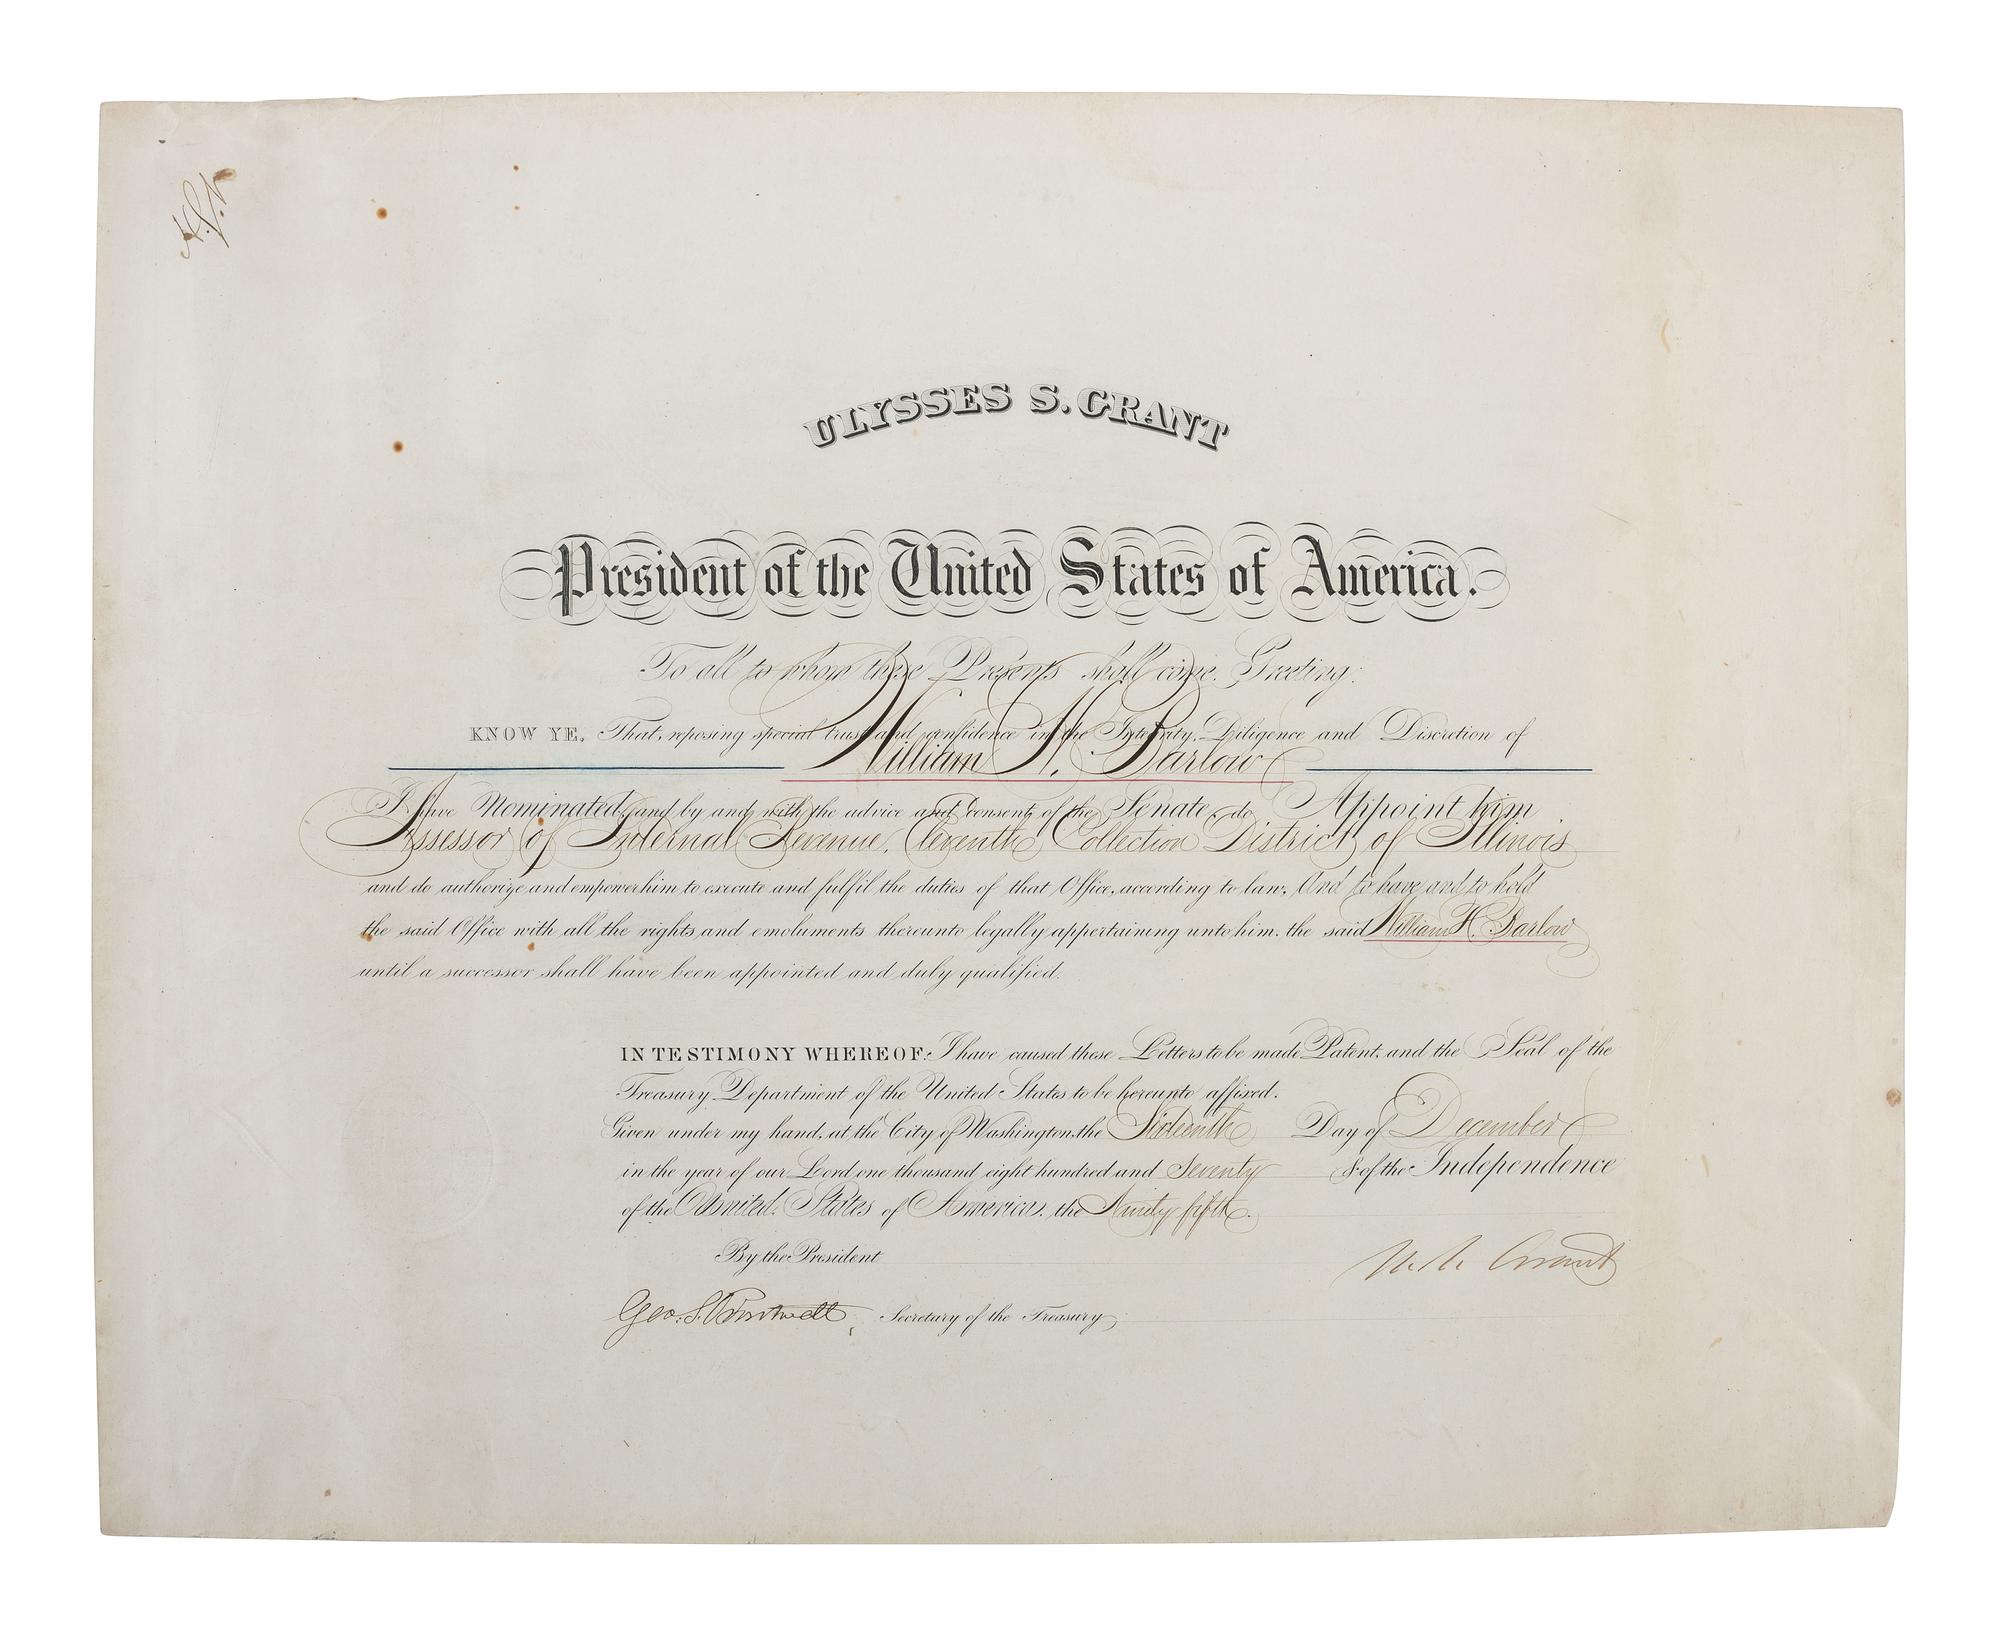 ULYSSES S. GRANT
President of the United States of America.
To all to whom these Presents shall come. Greeting:
KNOW YE, That, reposing special trust and confidence in the Integrity, Diligence and Discretion of
William H. Barlow
I have Nominated, and by and with the advice and consent of the Senate, do Appoint him
Assessor of Internal Revenue, Eleventh Collection District of Illinois
and do authorize and empower him to execute and fulfil the duties of that Office, according to law; And to have and to hold
the said Office with all the rights and emoluments thereunto legally appertaining unto him, the said William H. Barlow
until a successor shall have been appointed and duly qualified.
IN TESTIMONY WHEREOF: I have caused these Letters to be made Patent, and the Seal of the
Treasury Department of the United States to be hereunto affixed.
Given under my hand, at the City of Washington, the Sixteenth Day of December
in the year of our Lord one thousand eight hundred and Seventy & of the Independence
of the United States of America, the Ninety fifth.
By the President
U. S. Grant
Geo. S. Boutwell, Secretary of the Treasury